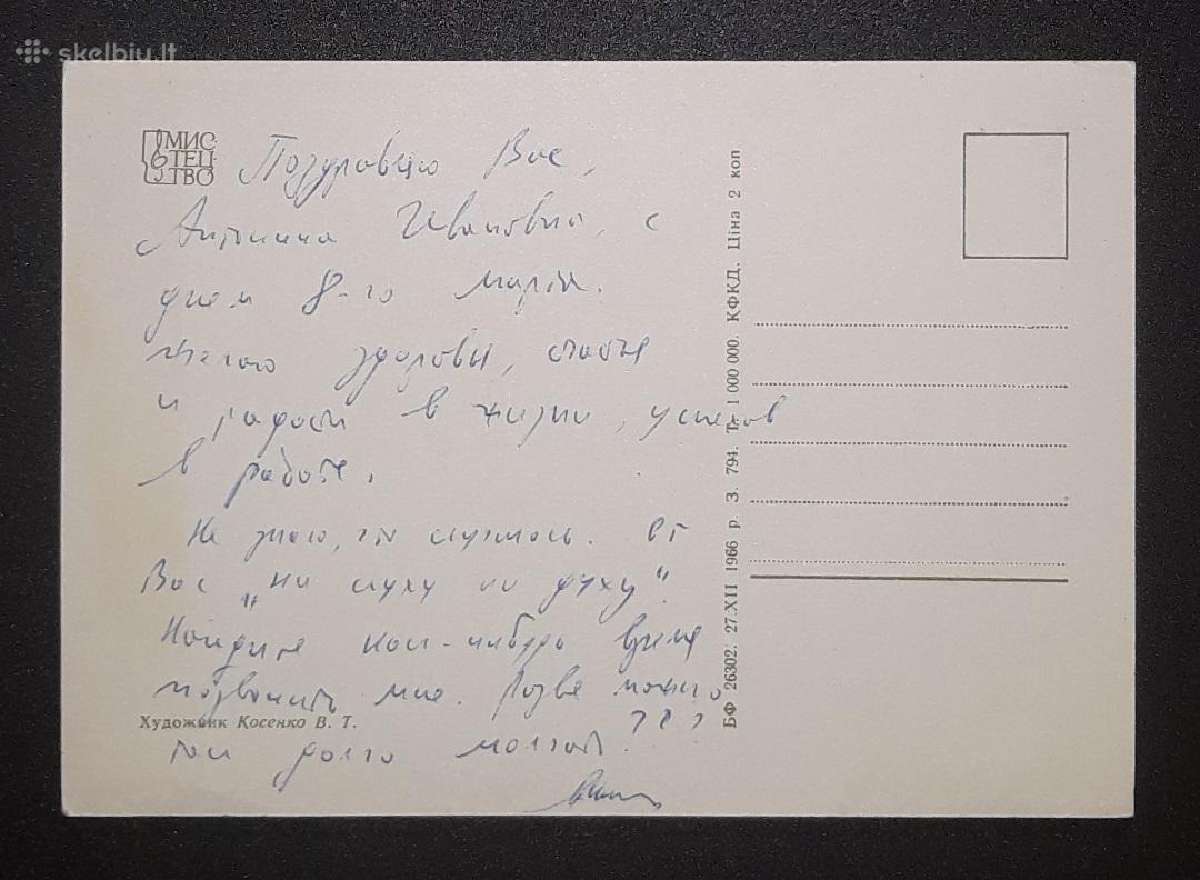 skelbiu.lt
МИС-
ТЕЦ-
ТВО
Поздравляю Вас,
Антонина Ивановна, с
днем 8-го марта.
Желаю здоровья, счастья
и радости в жизни, успехов
в работе.
Не знаю, что случилось. От
Вас „ни слуху ни духу".
Найдите как-нибудь время
позвонить мне. Разве можно
так долго молчать???
Художник Косенко В. Т.
БФ 26302. 27.XII 1966 р. З. 794. Т. 1 000 000. КФКД. Ціна 2 коп